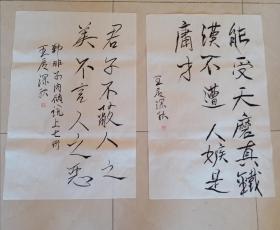 能受天磨真鐵
漢不遭人嫉是
庸才
壬辰深秋
君子不蔽人之
美不言人之惡
韩非子内储说上七術
壬辰深秋